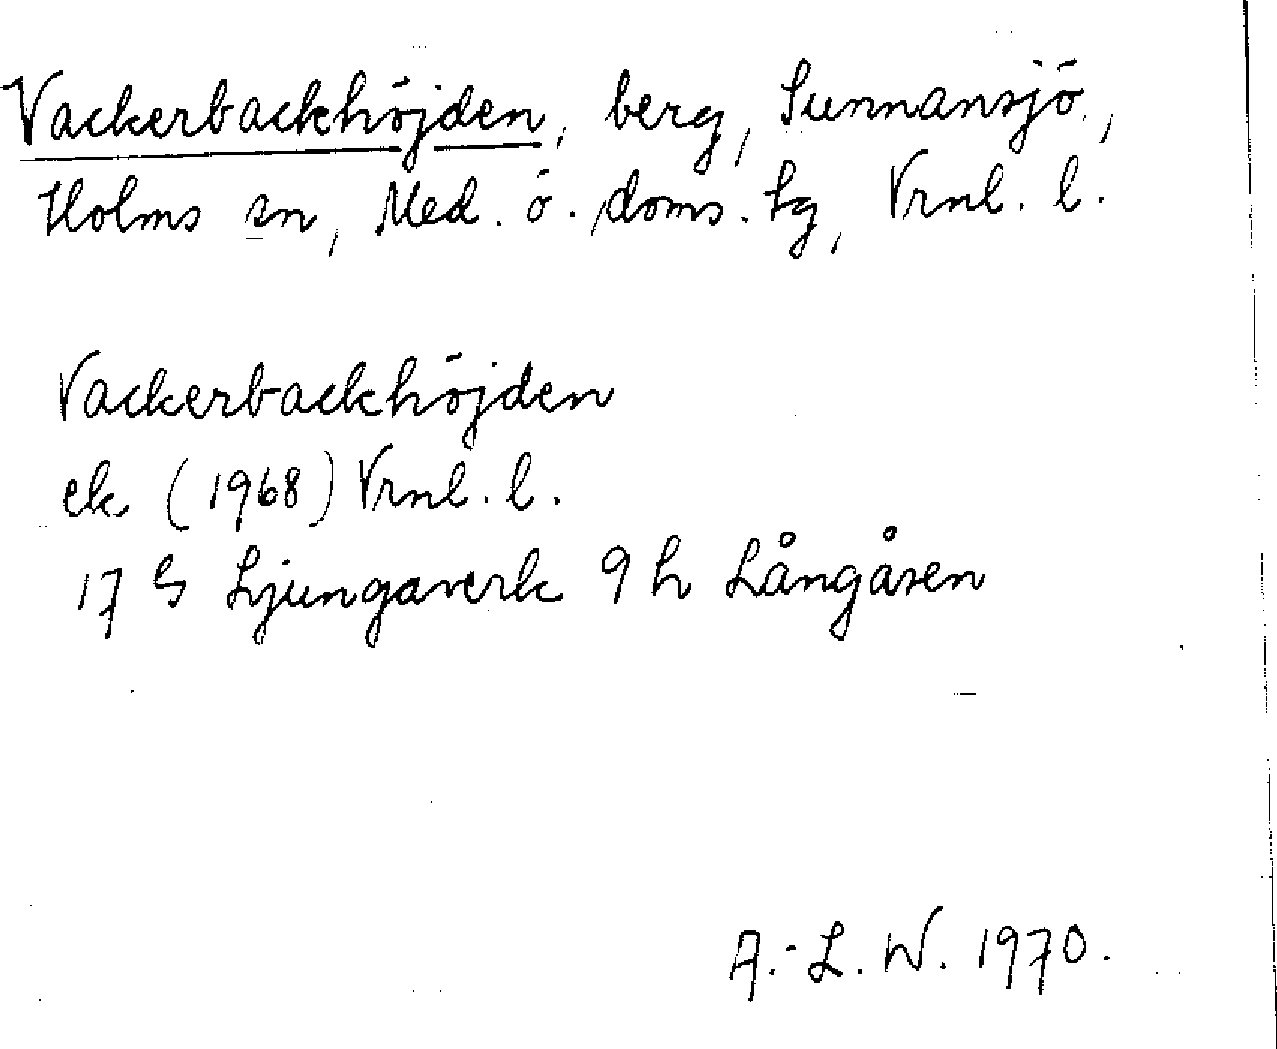 Vackerbackhöjden, berg, Sunnansjö,
Holms sn, Med. ö. doms. tg, Vrnl. l.
Vackerbackhöjden
ek (1968) Vrnl. l.
17 G Ljungaverk 9 h Långåsen
A.-L. W. 1970.